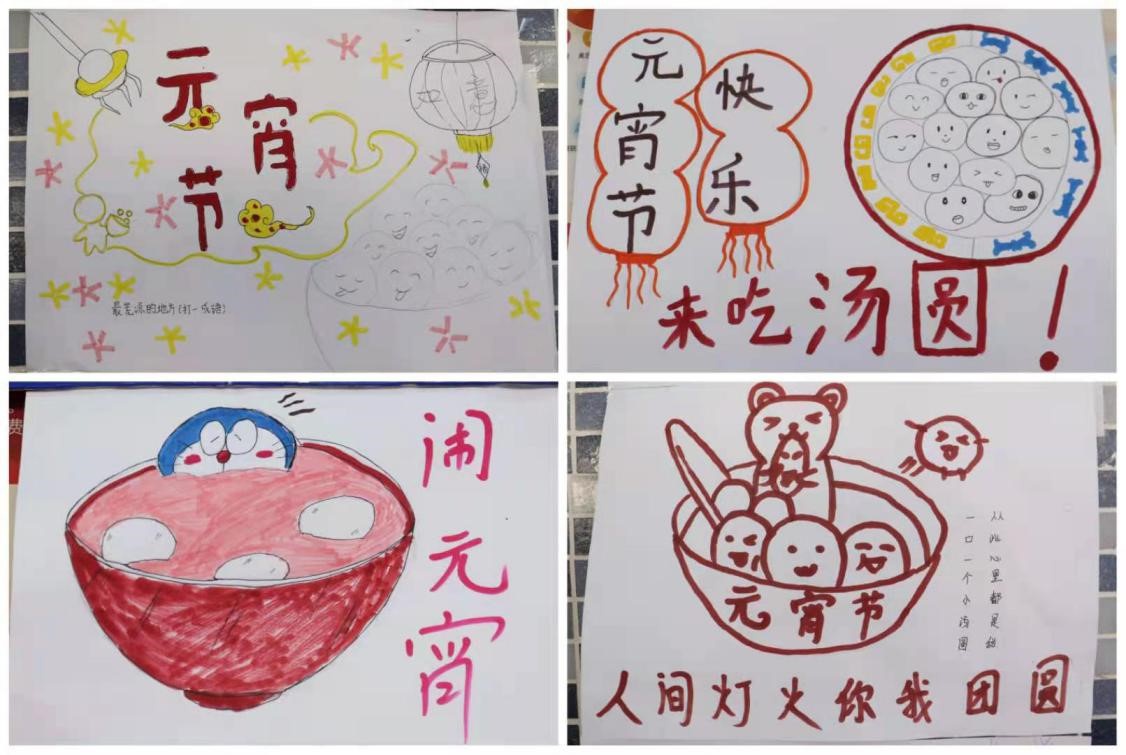 元宵节
最荒凉的地方(打一成语)
元宵节
快乐
来吃汤圆！
闹元宵
元宵节
一口一个小汤圆
从此心里都是甜
人间灯火你我团圆